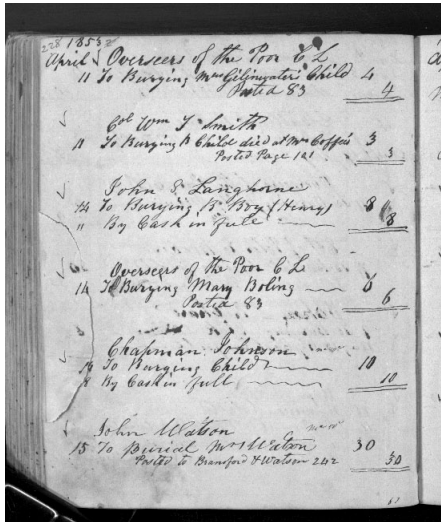 228 1853
April Overseers of the Poor C L
11 To Burying Mrs Gilinwater's Child 4
Posted 83 4
Col Wm T Smith
11 To Burying B Child died at Mrs Coffin's 3
Posted Page 121 3
John S Langhorne
14 To Burying B Boy (Henry) 8
" By Cash in full 8
Overseers of the Poor C L
14 To Burying Mary Boling 6
Posted 83 6
Chapman Johnson
14 To Burying Child 10
" By Cash in full 10
John Watson
15 To Burial Mrs Watson 30
Posted to Bransford & Watson 242 30